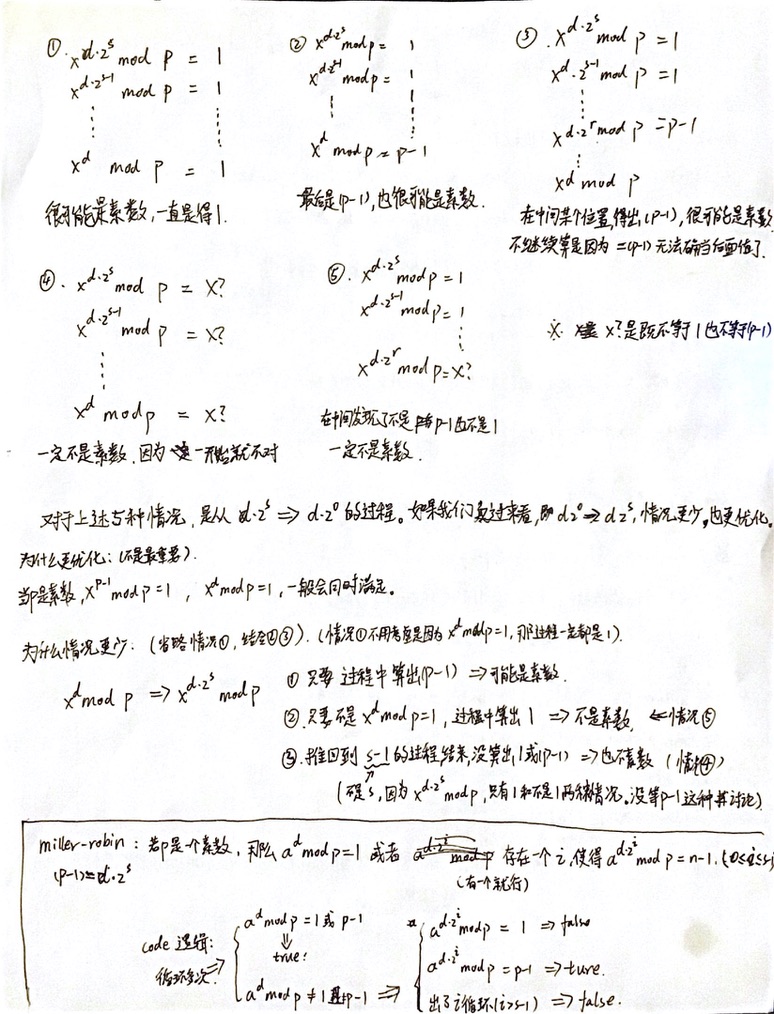 ① x^{d·2^s} mod p = 1
x^{d·2^{s-1}} mod p = 1
x^d mod p = 1
很可能是素数,一直是得1.
② x^{d·2^s} mod p = 1
x^{d·2^{s-1}} mod p = 1
x^d mod p = p-1
最后是(p-1),也很可能是素数.
③. x^{d·2^s} mod p = 1
x^{d·2^{s-1}} mod p = 1
x^{d·2^r} mod p = p-1
x^d mod p
在中间某个位置,得出(p-1),很可能是素数
不继续算是因为 =(p-1) 无法确当后面值了.
④. x^{d·2^s} mod p = X?
x^{d·2^{s-1}} mod p = X?
x^d mod p = X?
一定不是素数.因为一开始就不对
⑤. x^{d·2^s} mod p = 1
x^{d·2^{s-1}} mod p = 1
x^{d·2^r} mod p = X?
在中间发现了不是p-1也不是1
一定不是素数.
※ X?是既不等于1也不等于(p-1)
对于上述5种情况,是从 d·2^s ⇒ d·2^0 的过程。如果我们反过来看,即 d·2^0 → d·2^s,情况更少,也更优化。
为什么更优化:(不是最重要).
当p是素数,x^{p-1} mod p = 1 , x^d mod p = 1,一般会同时满足。
为什么情况更少:(省略情况①,结合②③).(情况①不用考虑是因为 x^d mod p = 1,那过程一定都是1).
x^d mod p ⇒ x^{d·2^s} mod p
① 只要 过程中算出(p-1) ⇒ 可能是素数.
②.只要不是 x^d mod p = 1,过程中算出 1 ⇒ 不是素数. ⇐情况⑤
③.推回到 s-1 的过程结束,没算出1或(p-1) ⇒ 也不素数 (情况④)
(不是s,因为 x^{d·2^s} mod p,只有1和不是1两种情况。没等p-1这种再讨论)
miller-robin : 若p是一个素数,那么 a^d mod p = 1 或者 存在一个 i,使得 a^{d·2^i} mod p = n-1.
(p-1) = d·2^s
(有一个就行)
code 逻辑:
循环多次.⇒
a^d mod p = 1 或 p-1
⇓
true:
a^d mod p ≠ 1 且≠ p-1 ⇒
a^{d·2^i} mod p = 1 ⇒ false
a^{d·2^i} mod p = p-1 ⇒ ture.
出了i循环(i>s-1) ⇒ false.